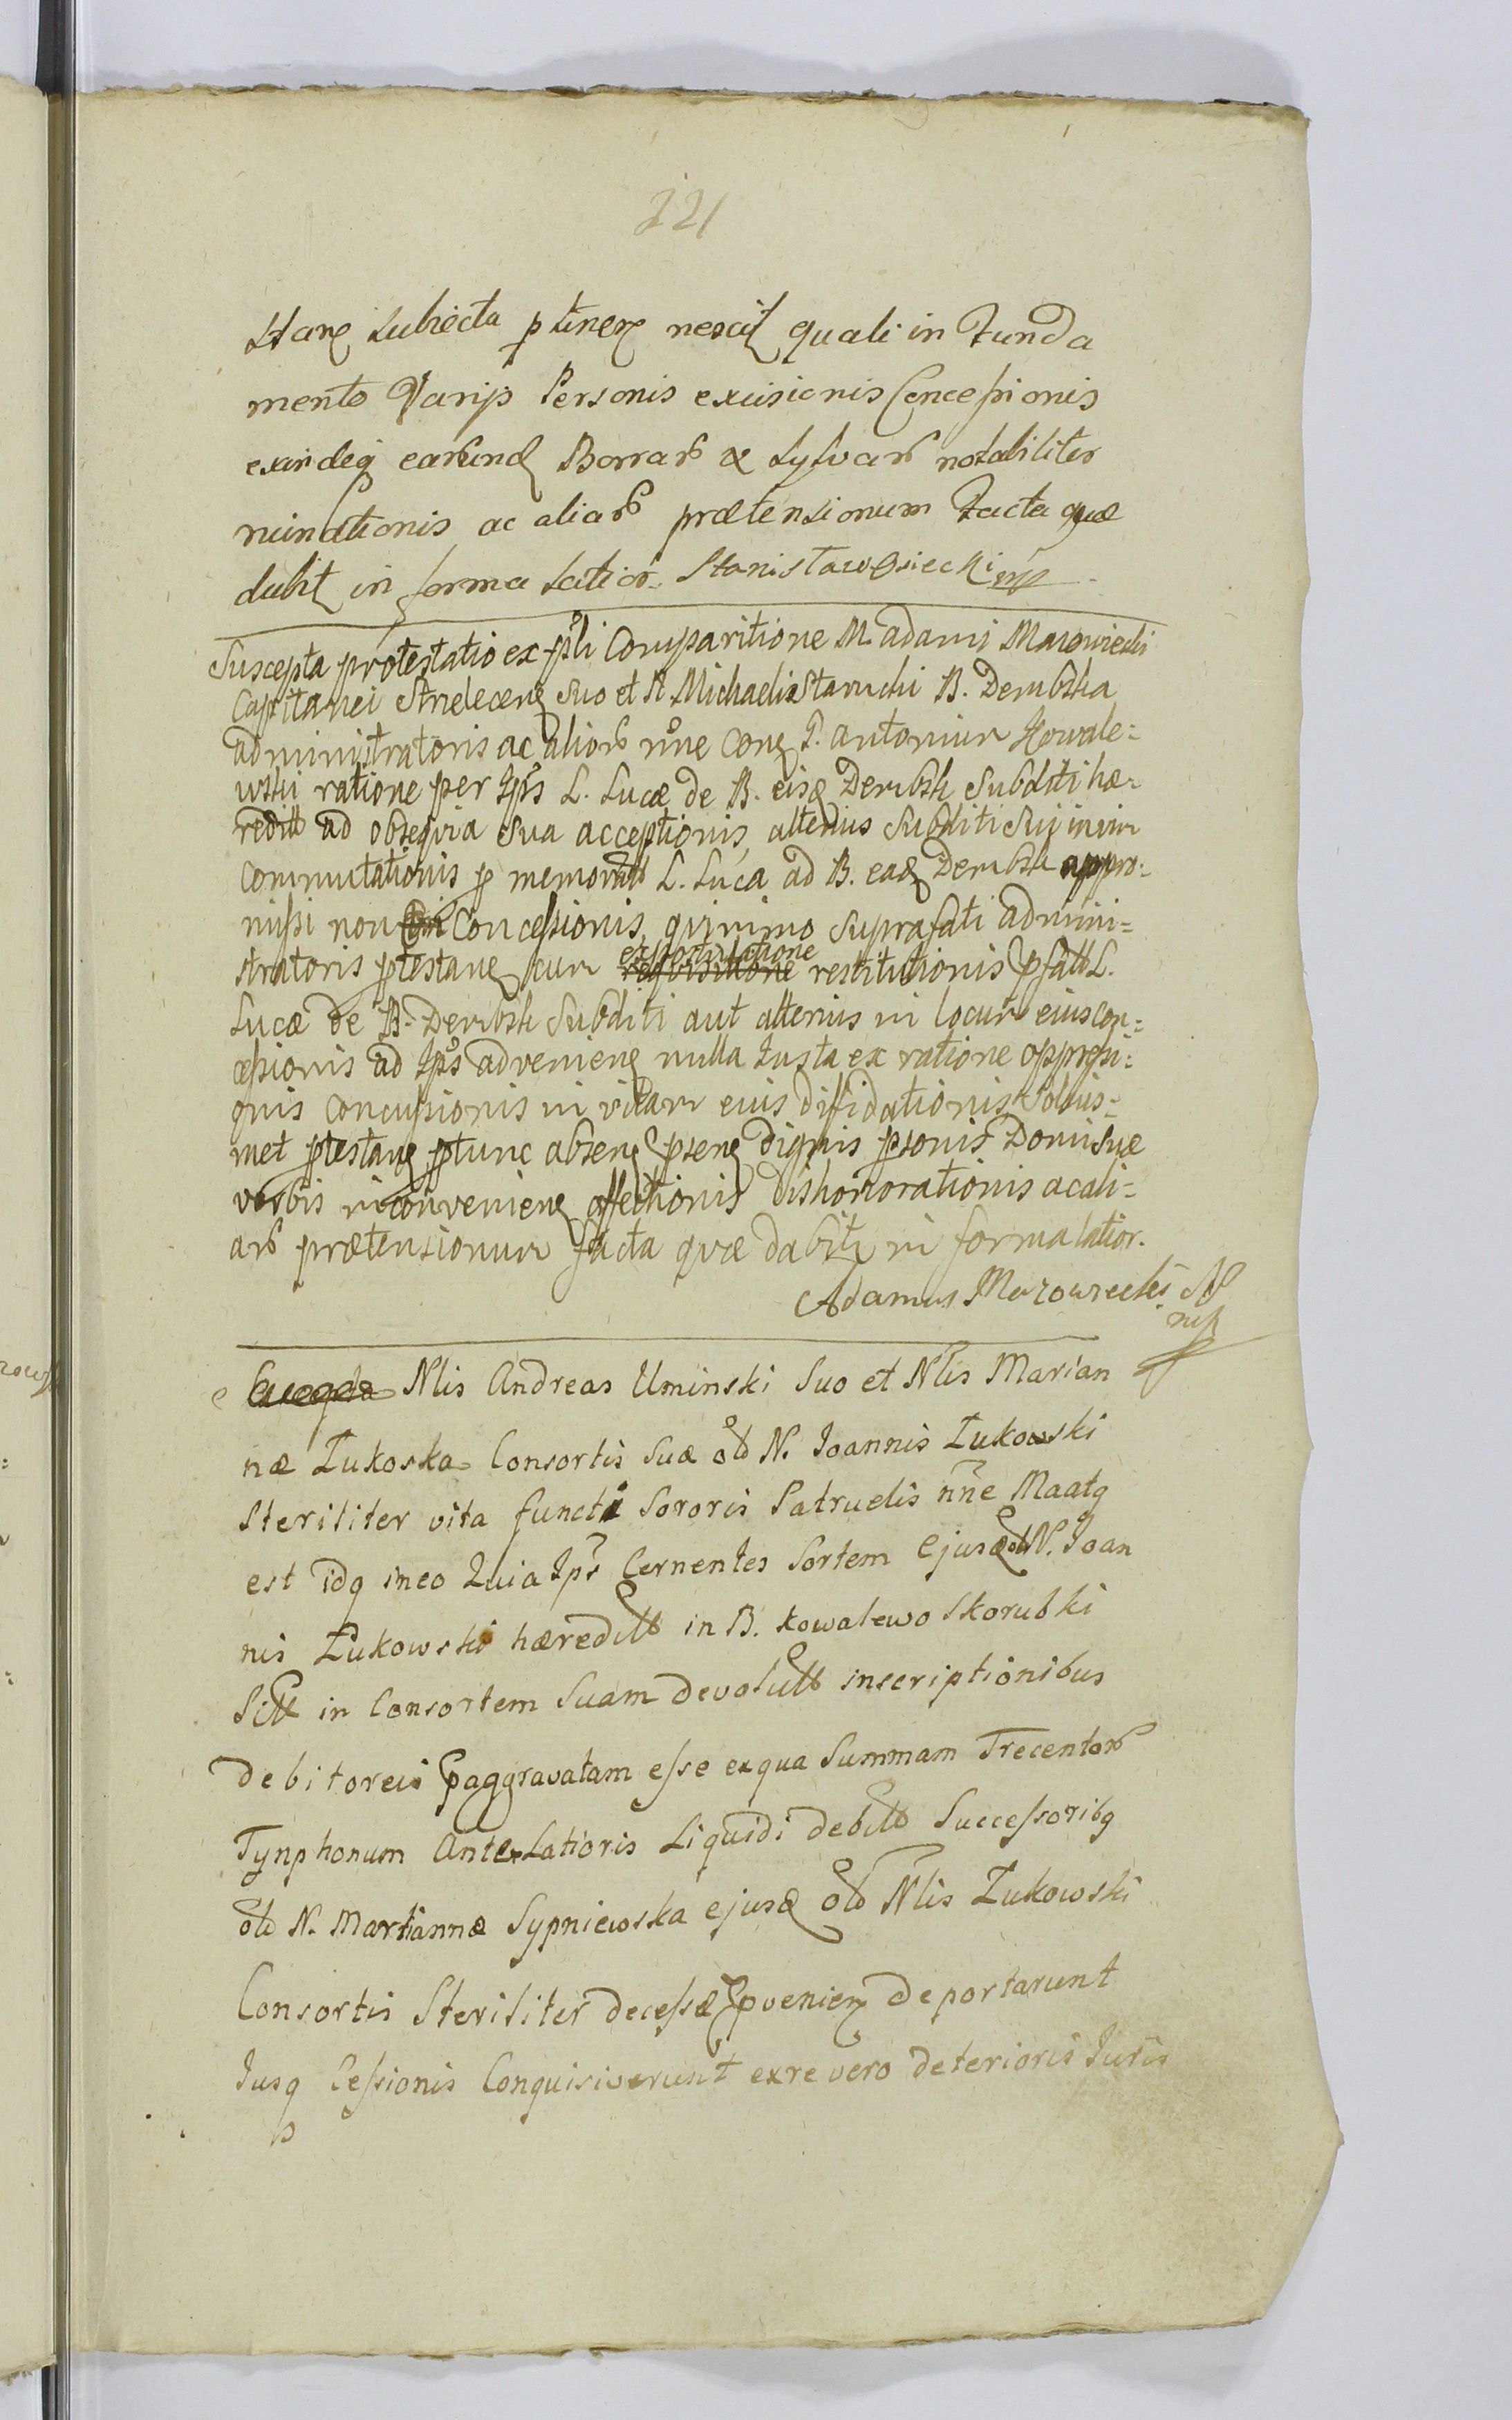 221
Hare Subiecta ptinere nescit quali in Funda
mento Varijs Personis excisionis Concessionis
exindeq earund Borrar & Sylvar notabiliter
ruinationis ac aliar prætensionum Facta quæ
dabit in forma latior. Stanisław Osiecki mp
Suscepta protestatio ex psli Comparitione M. adami Mazowiecki
Capitanei Strelecen Suo et N. Michaelis Staruchi B. Dembska
administratoris ac alior nne con P. antonium Kowale=
wski ratione per Ips L. Lucæ de B. eisd Dembsk Subditi hæ-
redit ad obsequia Sua acceptionis, alterius Subditi Sui in vim
commutationis p memorat L. Luca ad B. ead Dembsk appro-
missi non Concessionis, quinimo Suprafati admini=
stratoris ptestan cum expostulatione restitutionis pfatt L.
Lucæ de B. Dembsk Subditi aut alterius in locum eius con=
cessionis ad Ips advenien nulla Justa ex ratione oppressi-
onis concussionis in vitam eius diffidationis Solius=
met ptestan ptunc absen psen dignis psonis Domi Suæ
verbis inconvenien affectionis dishonorationis ac ali=
ar prætensionum facta quæ dabit in forma latior.
Adamus Mazowiecki
mp
Nlis Andreas Uminski Suo et Nlis Marian
næ Zukoska Consortis Suæ old N. Joannis Zukowski
Steriliter vita functi Sororis Patruelis nne Maatq
est idq ineo Quia Ips Cernentes Sortem Ejusd old N. Joan
nis Zukowski hæreditt in B. Kowalewo Skorubki
Sitt in Consortem Suam devolutt inscriptionibus
debitoreis paggravatam esse ex qua Summam Trecentor
Tynphonum Ante Latioris Liquidi debitt Successoribq
old N. Mariannæ Sypniewska ejusd old Nlis Zukowski
Consortis Steriliter decessæ pvenien deportarunt
Jusq Cessionis Conquisiverunt ex re vero deterioris Juris